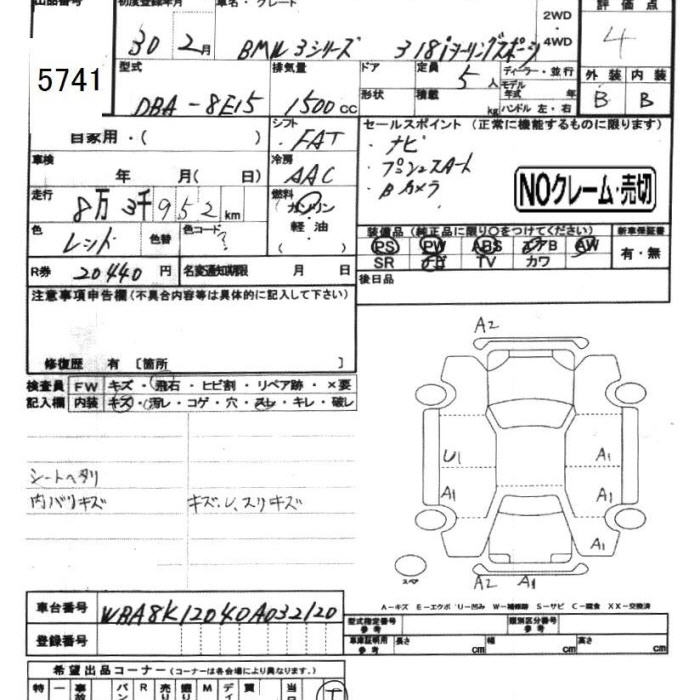 出品番号 初度登録年月 車名・グレード 評価点
30 2月 BMW 3シリーズ 318iツーリングスポーツ 2WD 4WD 4
5741
型式 排気量 ドア 定員 5人 ディーラー・並行 外装 内装
DBA-8E15 1500cc 形状 積載 kg モデル年式 年 ハンドル 左・右 B B
自家用・( ) シフト ・FAT セールスポイント (正常に機能するものに限ります)
車検 年 月( 日) 冷房 AAC ・ナビ
・プッシュスタート
・Bカメラ
NOクレーム・売切
走行 8万3千952km 燃料 ガソリン・軽油・( )
色 レッド 色替 色コード ?
装備品 (純正品に限り〇をつけてください) 新車保証書
PS PW ABS エアB AW 有・無
SR ナビ TV カワ
R券 20440円 名変通知期限 月 日 後日品
注意事項申告欄(不具合内容等は具体的に記入して下さい)
修復歴 有〔箇所 〕
検査員 FW キズ・飛石・ヒビ割・リペア跡・×要
記入欄 内装 キズ・汚レ・コゲ・穴・スレ・キレ・破レ
シートヘタリ
内バリキズ キズ、レ、スリキズ
A2
U1 A1
A1 A1
A1
スペア A2 A1
A-キズ E-エクボ U-凹み W-補修跡 S-サビ C-腐食 XX-交換済
車台番号 WBA8K12040A032120
登録番号
型式指定番号 参考 類別区分番号 参考
車庫証明用 参考 長さ cm 幅 cm 高さ cm
希望出品コーナー (コーナーは各会場により異なります。)